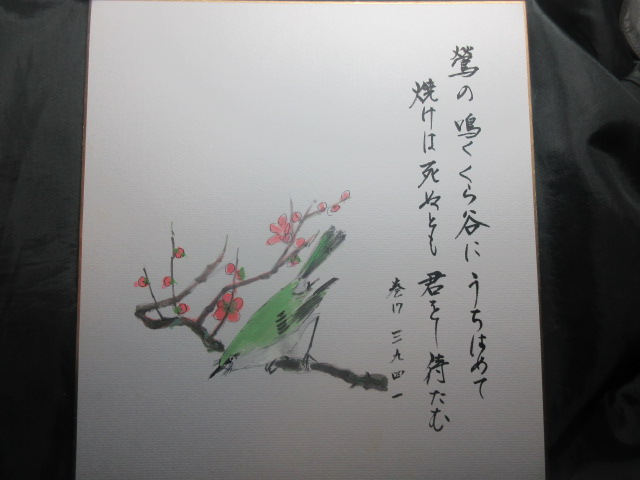 鶯の鳴くくら谷にうちはめて
焼けは死ぬとも君をし待たむ
巻17 三九四一